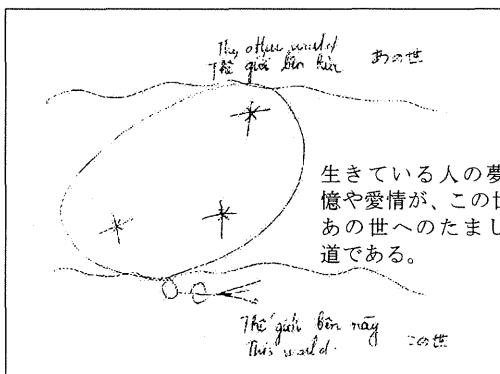 The other world
Thế giới bên kia
あの世
生きている人の夢
憶や愛情が、この世
あの世へのたまし
道である。
Thế giới bên này
This world.
この世